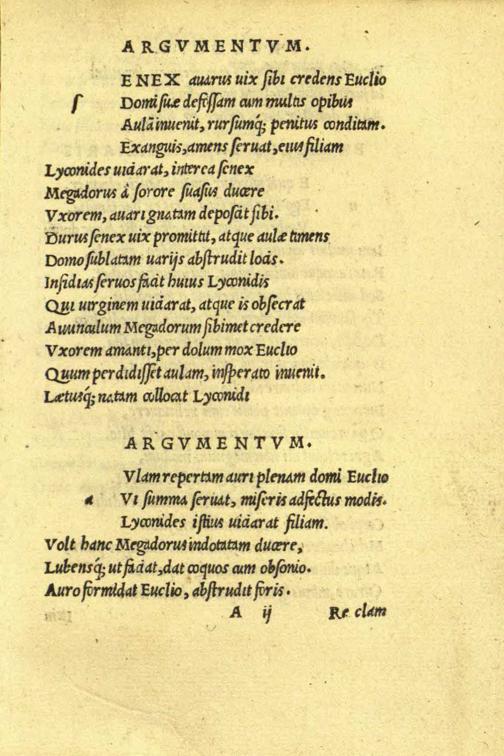 ARGVMENTVM.
ſ ENEX auarus uix ſibi credens Euclio
Domi ſuæ defoſſam cum multis opibus
Aulã inuenit, rurſumq; penitus conditam.
Exanguis, amens ſeruat, eius filiam
Lyconides uiciarat, interea ſenex
Megadorus à ſorore ſuaſus ducere
Vxorem, auari gnatam depoſcit ſibi.
Durus ſenex uix promittit, atque aulæ timens
Domo ſublatam uarijs abſtrudit locis.
Inſidias ſeruos facit huius Lyconidis
Qui uirginem uiciarat, atque is obſecrat
Auunculum Megadorum ſibimet credere
Vxorem amanti, per dolum mox Euclio
Quum perdidiſſet aulam, inſperato inuenit.
Lætusq; natam collocat Lyconidi
ARGVMENTVM.
a Vlam repertam auri plenam domi Euclio
Vi ſumma ſeruat, miſeris adfectus modis.
Lyconides iſtius uiciarat filiam.
Volt hanc Megadorus indotatam ducere,
Lubensq; ut faciat, dat coquos cum obſonio.
Auro formidat Euclio, abſtrudit foris.
A ij Re clam